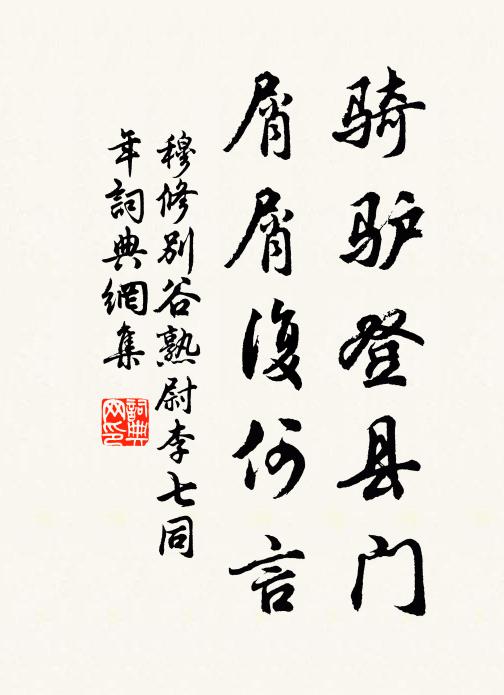 骑驴登县门
屑屑复何言
穆修别谷熟尉李七同
年詞典網集
詞典網印